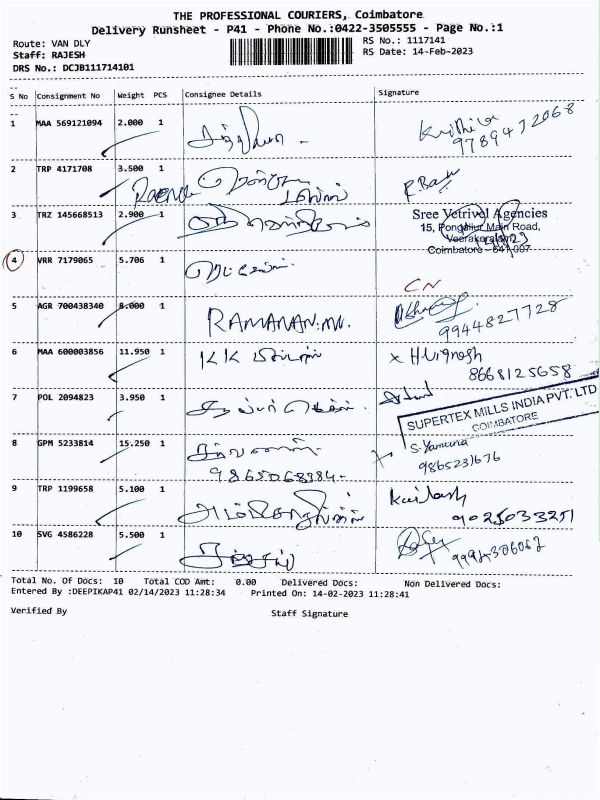 THE PROFESSIONAL COURIERS, Coimbatore
Delivery Runsheet - P41 - Phone No.:0422-3505555 - Page No.:1
Route: VAN DLY
RS No.: 1117141
Staff: RAJESH
RS Date: 14-Feb-2023
DRS No.: DCJB111714101
S No Consignment No Weight PCS Consignee Details Signature
1 MAA 569121094 2.000 1
2 TRP 4171708 3.500 1
3 TRZ 145668513 2.900 1
Sree Vetrivel Agencies
15, Pongaliur Main Road,
Veerakeralam
Coimbatore - 641 007
4 VRR 7179065 5.706 1
CN
5 AGR 700438340 8.000 1 RAMANAN.MV.
9944827728
6 MAA 600003856 11.950 1 KK x H.Vignesh
8668125658
7 POL 2094823 3.950 1
SUPERTEX MILLS INDIA PVT. LTD
COIMBATORE
8 GPM 5233814 15.250 1 S. Yamuna
9865068984- 9865231676
9 TRP 1199658 5.100 1 Kailash
9025033251
10 SVG 4586228 5.500 1
Total No. Of Docs: 10 Total COD Amt: 0.00 Delivered Docs: Non Delivered Docs:
Entered By :DEEPIKAP41 02/14/2023 11:28:34 Printed On: 14-02-2023 11:28:41
Verified By Staff Signature